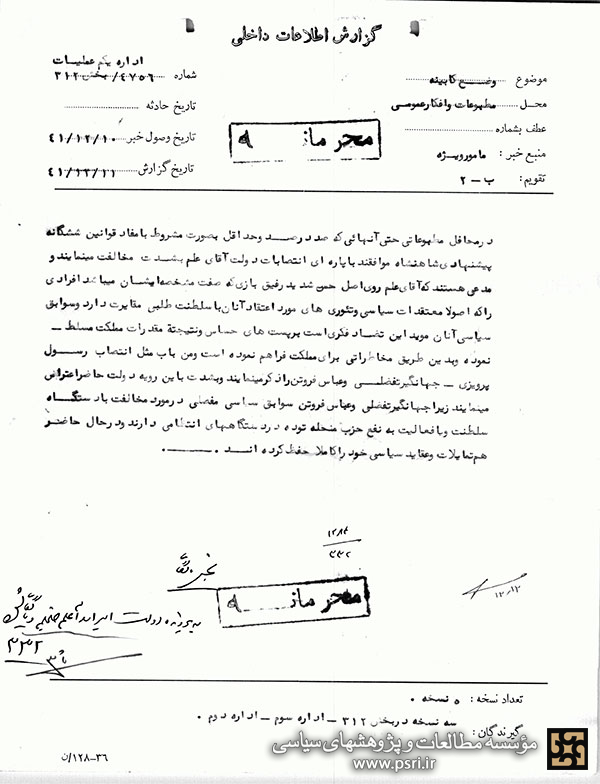 گزارش اطلاعات داخلی
اداره یکم عملیات
موضوع وضع کابینه
شماره ۴۷۵۶/بخش ۳۱۲
محل مطبوعات وافکارعمومی
تاریخ حادثه
عطف بشماره
تاریخ وصول خبر ۴۱/۱۲/۱۰
محرمانه
منبع خبر : مامورویژه
تاریخ گزارش ۴۱/۱۲/۱۱
تقویم : ب-۲
درمحافل مطبوعاتی حتی آنهائی که صددرصد وحداقل بصورت مشروط بامفاد قوانین ششگانه
پیشنهادی شاهنشاه موافقند باپاره ای انتصابات دولت آقای علم بشدت مخالفت مینمایند و
مدعی هستند که آقای علم روی اصل حس شدید رفیق بازی که صفت مشخصه ایشان میباشد افرادی
راکه اصولا معتقدات سیاسی وتئوری های مورد اعتقاد آنان باسلطنت طلبی مغایرت دارد وسوابق
سیاسی آنان موید این تضاد فکری است برپست های حساس ونتیجة مقدرات مملکت مسلط -
نموده وبدین طریق مخاطراتی برای مملکت فراهم نموده است ومن باب مثل انتصاب رسول
پرویزی - جهانگیرتفضلی وعباس فروتن راذکرمینمایند وبشدت باین رویه دولت حاضراعتراض
مینمایند زیراجهانگیرتفضلی وعباس فروتن سوابق سیاسی مفصلی درمورد مخالفت بادستگاه
سلطنت وبافعالیت به نفع حزب منحله توده دردستگاههای انتظامی دارند ودرحال حاضر
هم تمایلات وعقاید سیاسی خودراکاملا حفظ کرده اند .
محرمانه
۱۲/۱۲
تعداد نسخه : ۵ نسخه .
گیرندگان : سه نسخه دربخش ۳۱۲ - اداره سوم - اداره دوم .
۳۶-۱۲۸/ن
مؤسسه مطالعات و پژوهشهای سیاسی
www.psri.ir